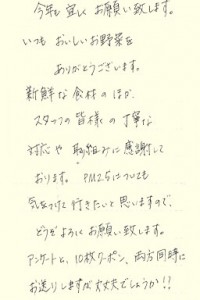 今年も宜しくお願い致します。
いつもおいしいお野菜を
ありがとうございます。
新鮮な食材のほか、
スタッフの皆様の丁寧な
対応や取組みに感謝して
おります。PM2.5についても
気をつけて行きたいと思いますので、
どうぞよろしくお願い致します。
アンケートと、10枚クーポン、両方同時に
お送りしますが大丈夫でしょうか!!